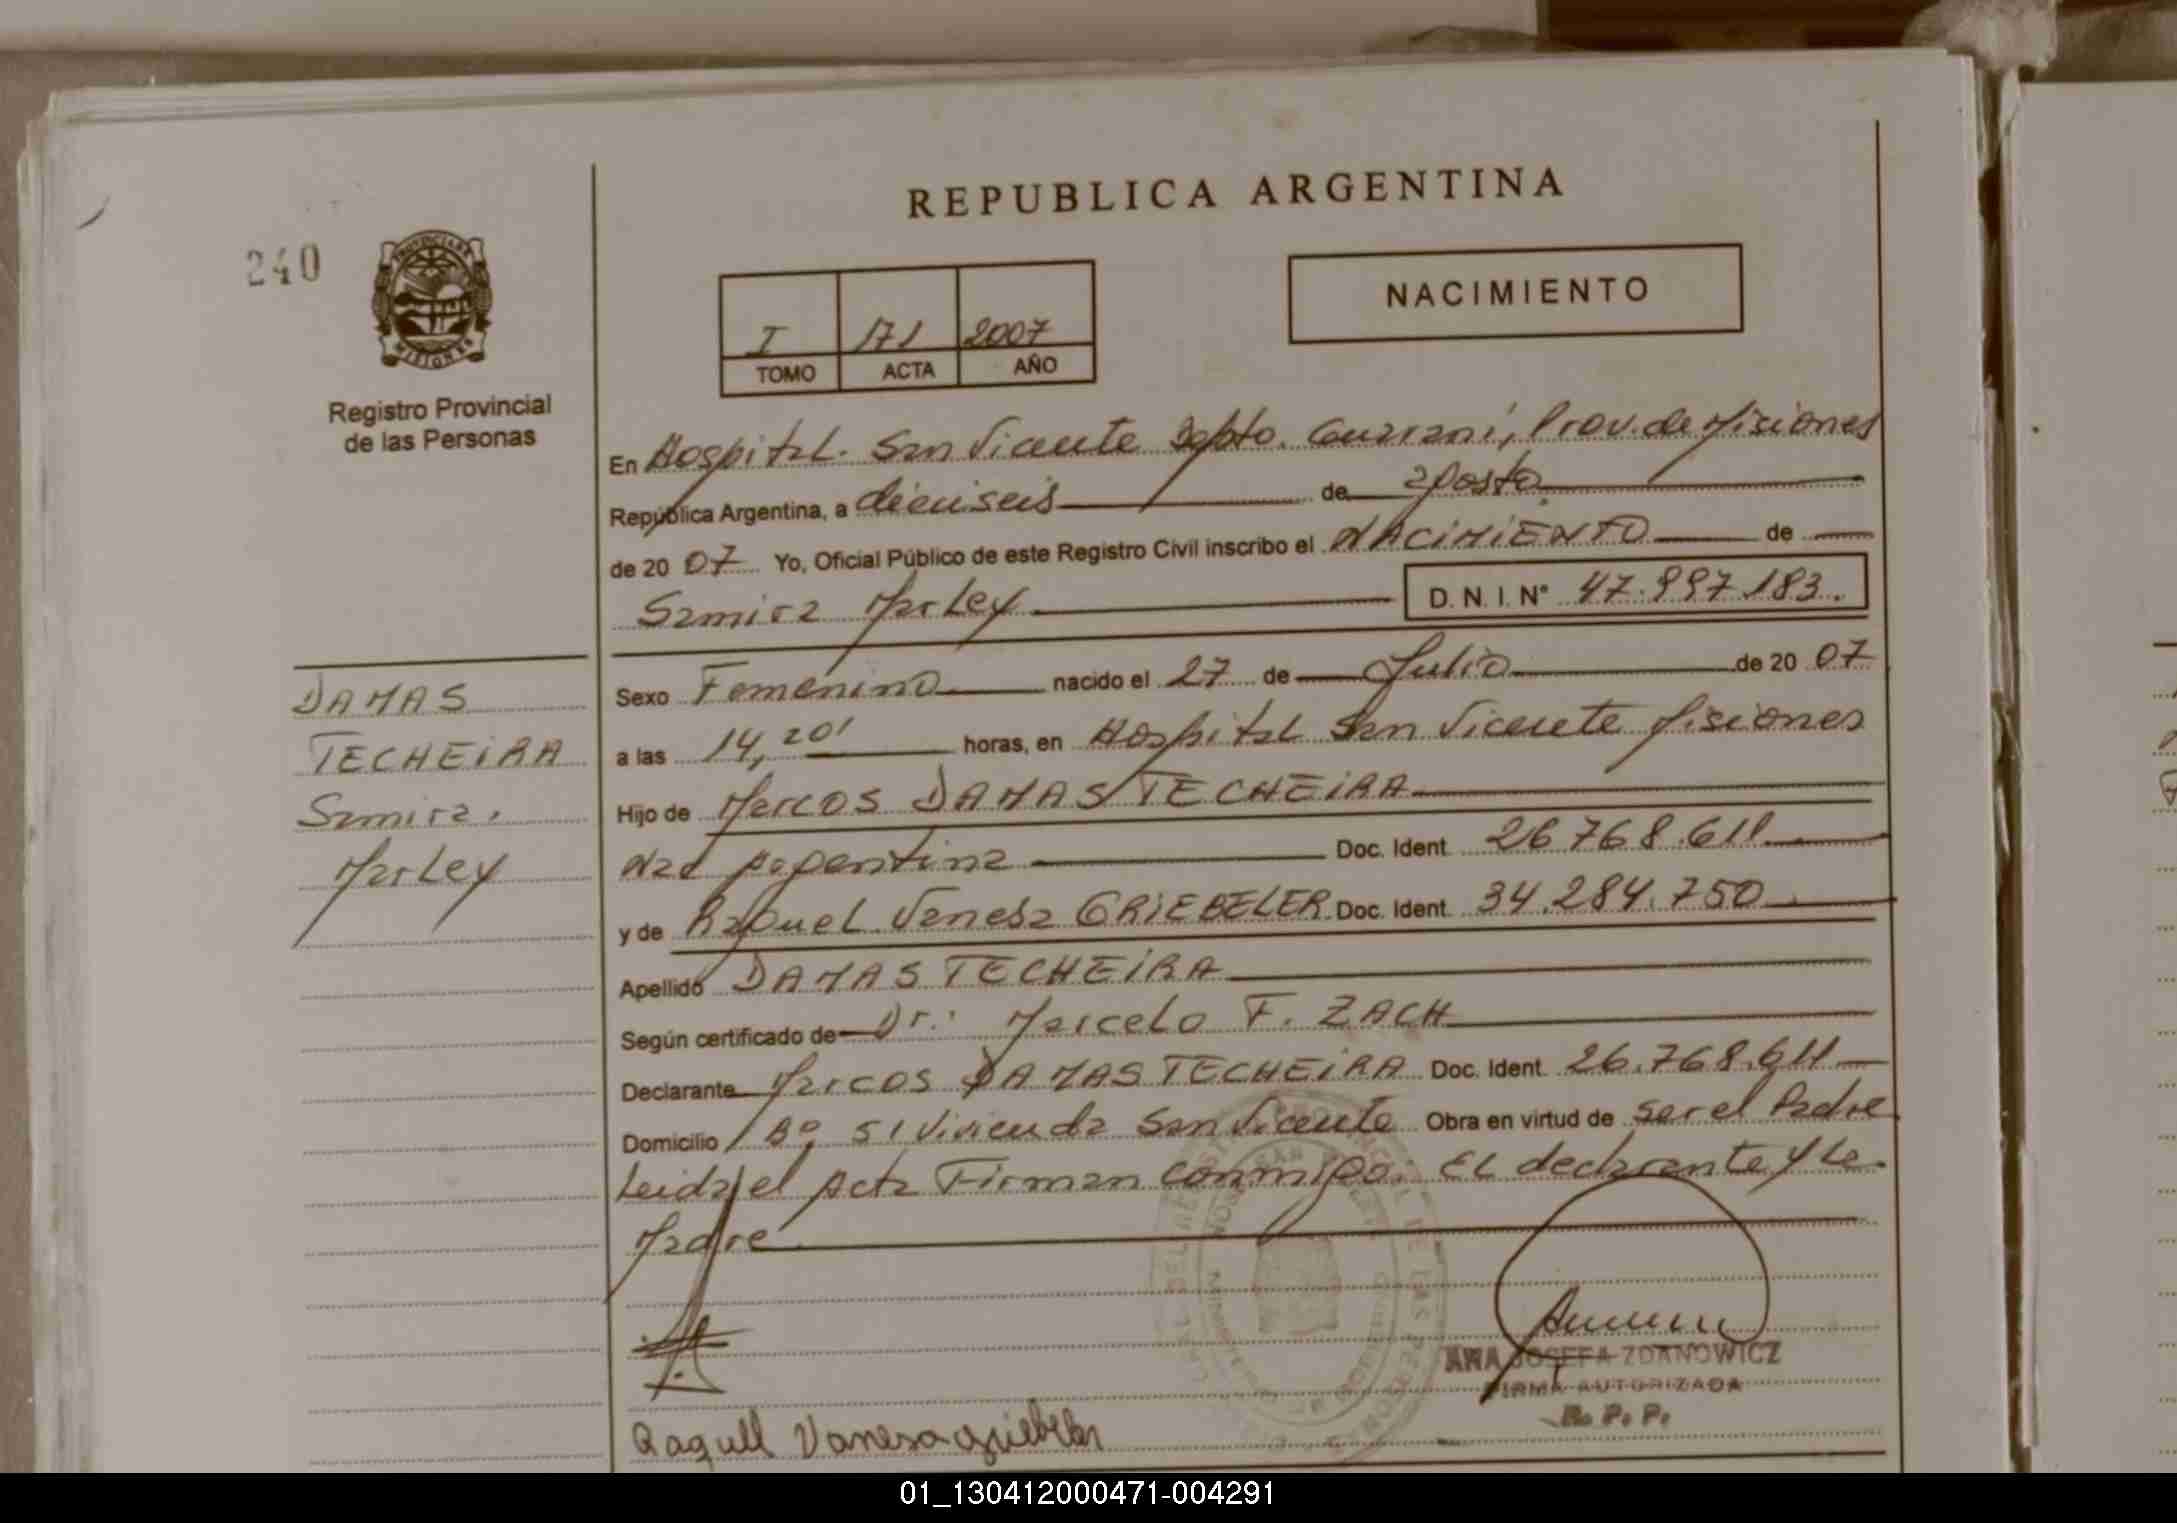 REPUBLICA ARGENTINA
240
PROVINCIA DE
MISIONES
NACIMIENTO
I 171 2007
TOMO ACTA AÑO
Registro Provincial
de las Personas
En Hospital. San Vicente Dpto. Guarani, Prov. de Misiones
República Argentina, a dieciseis de agosto
de 20 07 Yo, Oficial Público de este Registro Civil inscribo el NACIMIENTO de
Samira Marley D. N. I. Nº 47.997.183.
DAMAS
TECHEIRA
Samira.
Marley
Sexo Femenino nacido el 27 de Julio de 20 07
a las 14,20' horas, en Hospital San Vicente Misiones
Hijo de Marcos DAMAS TECHEIRA
Nac Argentina Doc. Ident. 26.768.611
y de Raquel Vanesa GRIEBELER Doc. Ident. 34.284.750
Apellido DAMAS TECHEIRA
Según certificado de Dr.: Marcelo F. ZACH
Declarante Marcos DAMAS TECHEIRA Doc. Ident. 26.768.611
Domicilio Bº 51 Vivienda San Vicente Obra en virtud de ser el Padre
Leida el Acta Firman conmigo. El declarante y La
Madre
ANA JOSEFA ZDANOWICZ
FIRMA AUTORIZADA
R. P. P.
Raquell Vanesa griebeler
01_130412000471-004291